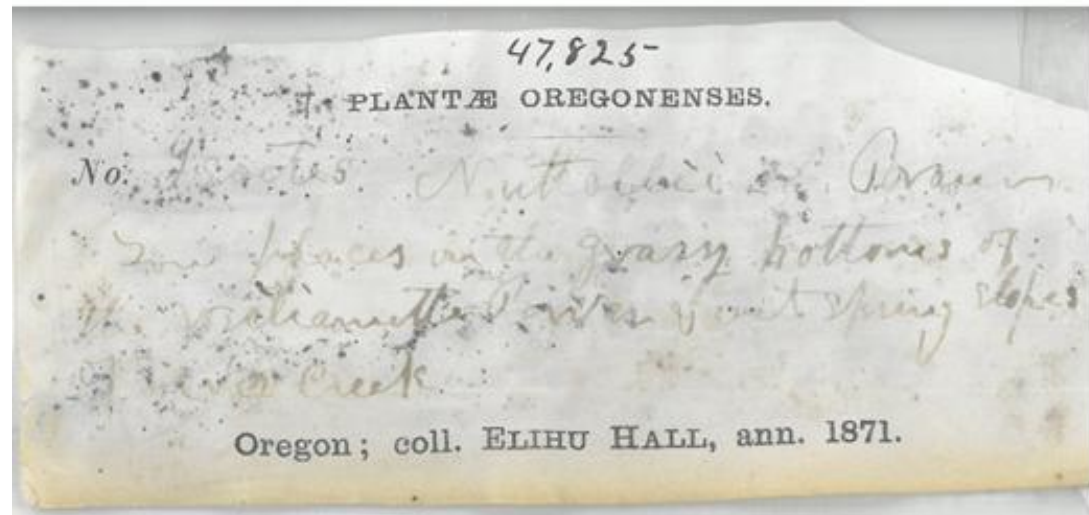 47,825
PLANTÆ OREGONENSES.
No. Isoetes Nuttallii A. Braun
Low places in the grassy bottoms of
the Willamette River & wet spring slopes
Creek
Oregon ; coll. ELIHU HALL, ann. 1871.